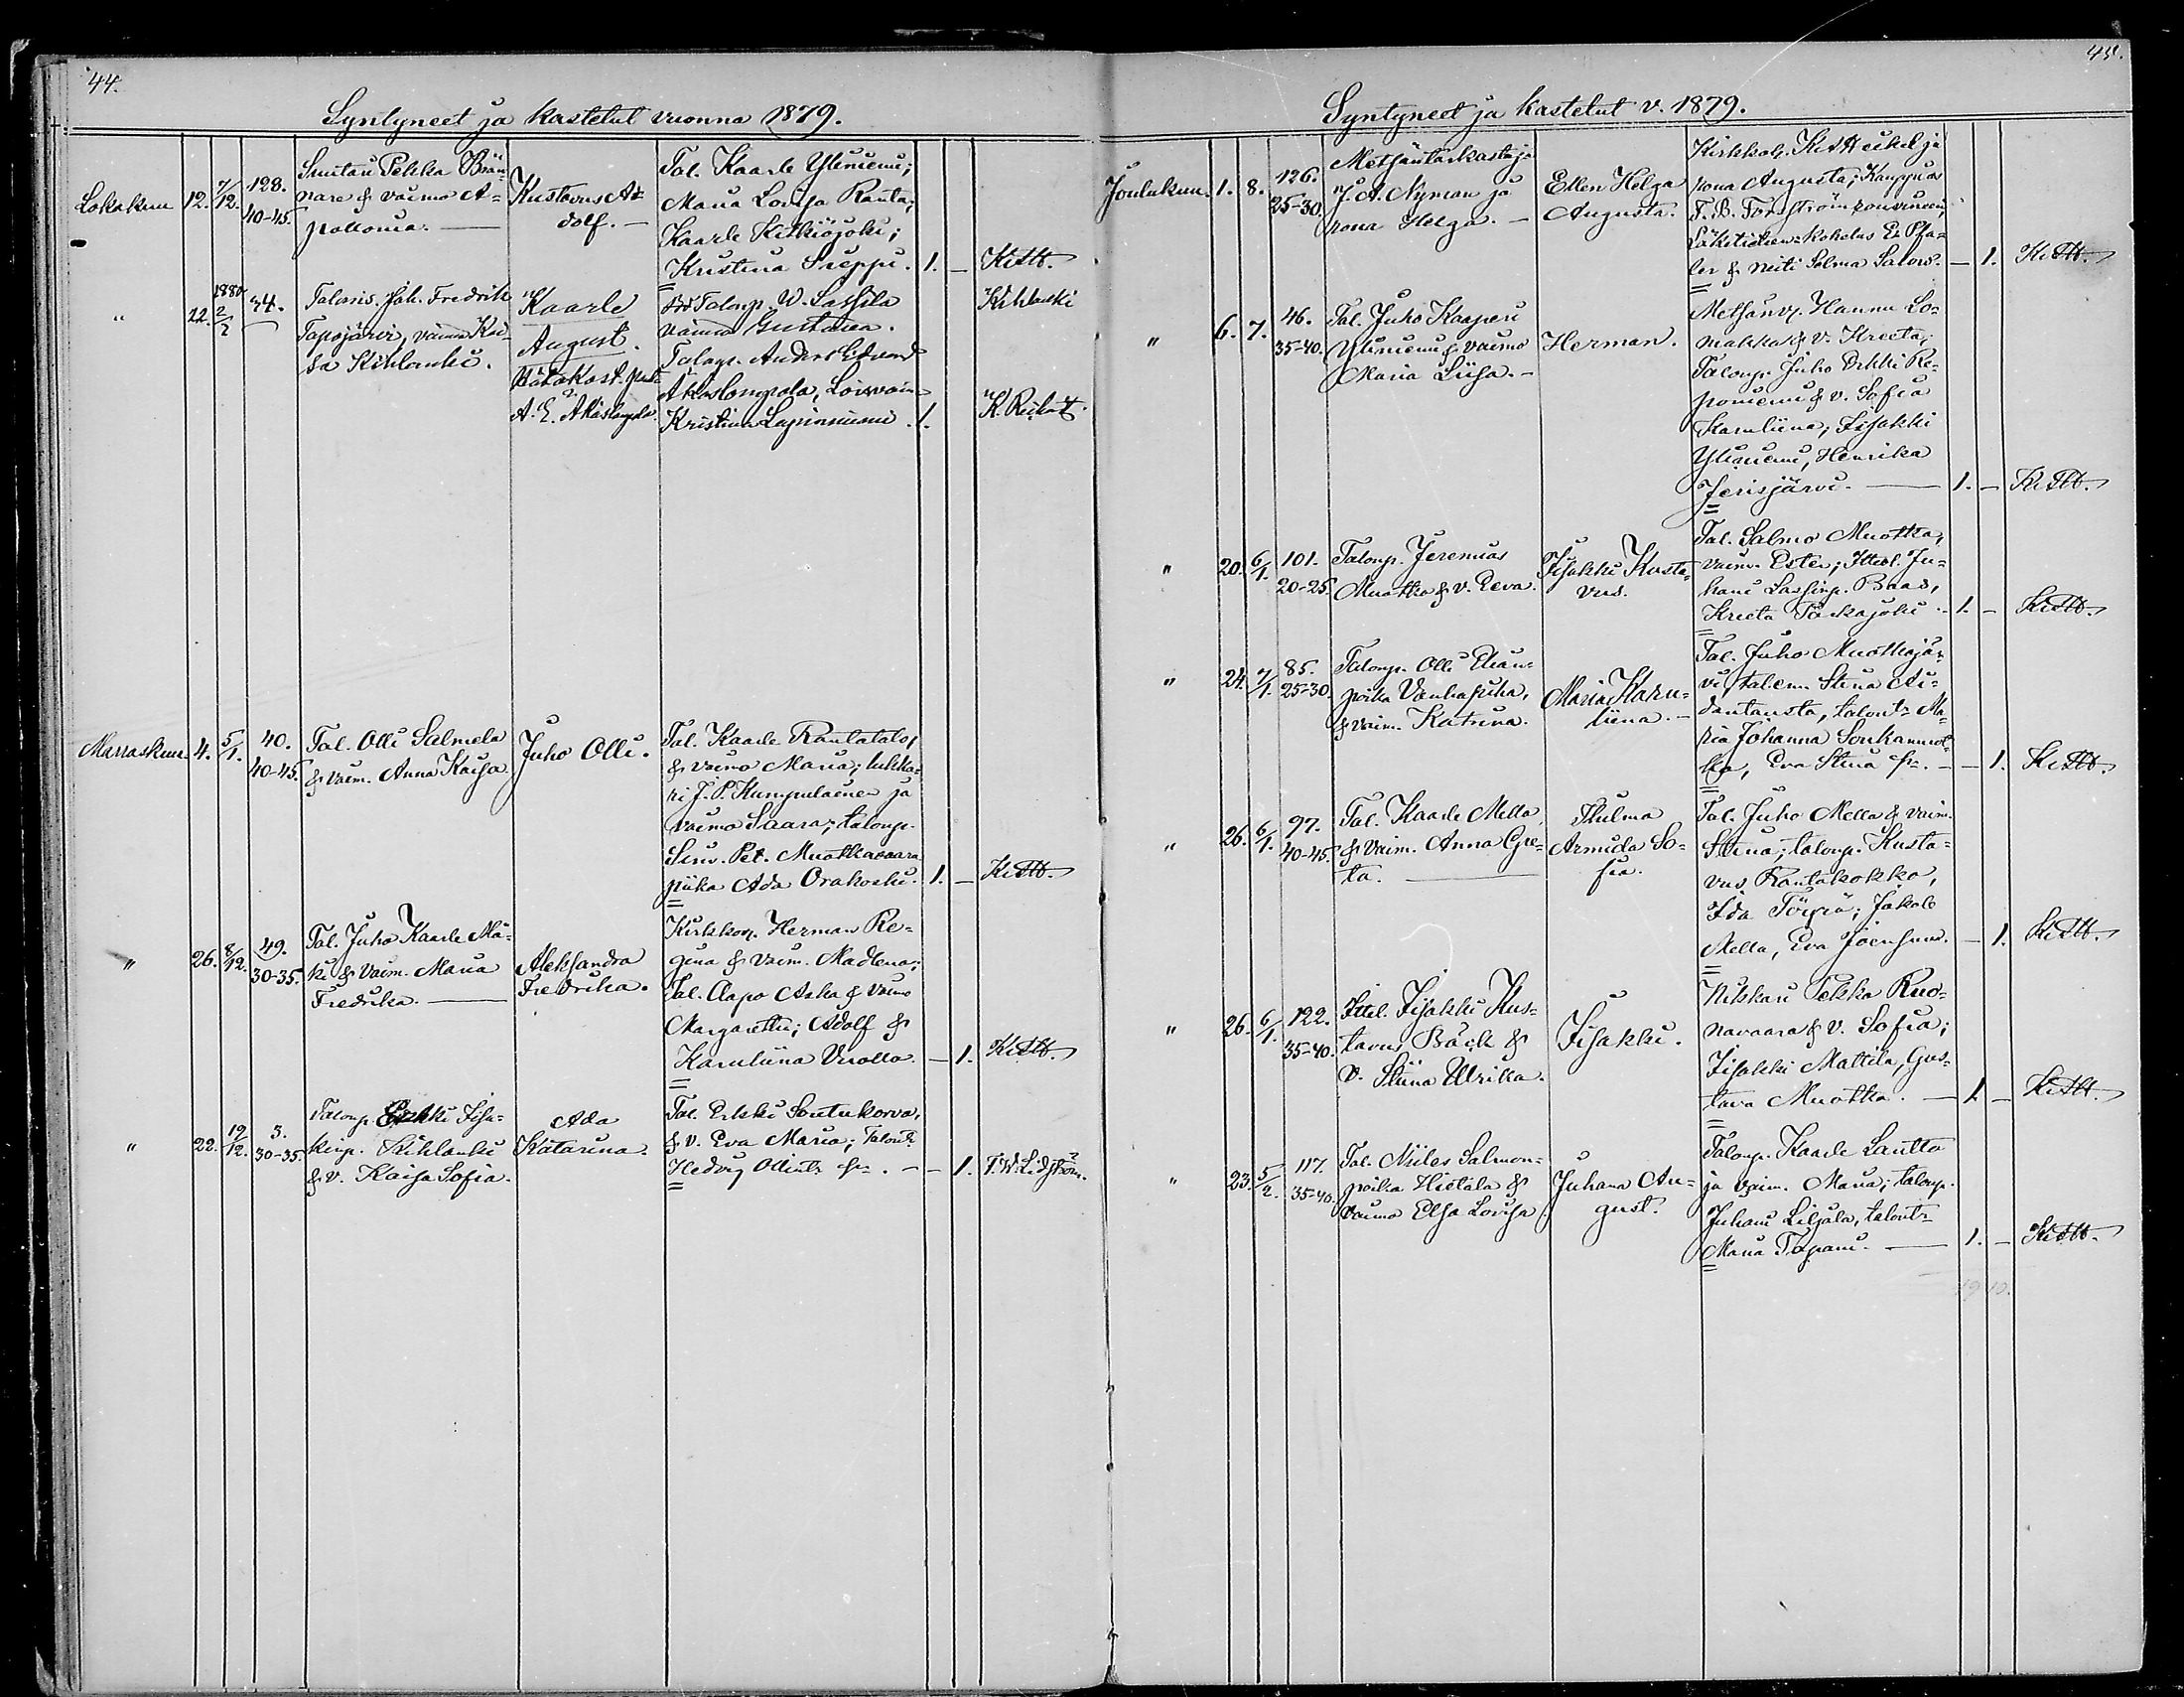 44.
Syntyneet ja kastetut vuonna 1879.
Lokakuu 12. 7/12. 128. 40-45.
Pekka Brän-
vare & vaimo A-
pollonia.
Kustavus A-
dolf.
Tal. Kaarle Yliniemi;
Maria Lovisa Ranta;
Kaarle Kitkiöjoki;
Kristina Sieppi. 1. -
" 22. 1880 2/2 34.
Joh. Fredrik
Tapojärvi, vaimo Kai-
sa Kihlanki.
Kaarle
August.
Hätäkast.
A. E. Äkäslompolo
Talonp. W. Lassila
vaimo Gustava.
Talonp. Anders Edvard
Äkäslompolo,
Kristina Lapinniemi 1.
Kihlanki
Marraskuu. 4. 5/1. 40. 40-45.
Tal. Olli Salmela
& vaim. Anna Kaisa.
Juho Olli.
Tal. Kaarle Rautatalo,
& vaimo Maria; lukka-
ri J. P. Kumpulainen ja
vaimo Saara; talonp.
Pet. Muotkavaara
piika Ada Orakoski. 1. -
" 26. 8/12. 49. 30-35.
Tal. Juho Kaarle Mä-
ki & vaim. Maria
Fredrika.
Aleksandra
Fredrika.
Kirkkoh. Herman Re-
gina & vaim. Madlena;
Tal. Aapo Aska & vaimo
Margareetta; Adolf &
Karuliina Vuollo. - 1.
" 22. 19/12. 3. 30-35.
Talonp. Erkki Iisa-
kinp. Kihlanki
& v. Kaisa Sofia.
Ada
Katarina.
Tal. Erkki Soutukorva,
& v. Eva Maria; Talont.
Hedvig Ollint. - 1. F. W. Lidström.
45.
Syntyneet ja kastetut v. 1879.
Joulukuu. 1. 8. 126. 25-30.
Metsäntarkastaja
J. A. Nyman ja
rouva Helga. -
Ellen Helga
Augusta.
Kirkkoh. ja
rouva Augusta; Kauppias
F. B. Forsström
Lääketieteen-kokelas E. Pfa-
ler & neiti Selma Salov. - 1.
" 6. 7. 46. 35-40.
Tal. Juho Kasperi
Yliniemi & vaimo
Maria Liisa. -
Herman.
Metsänv. Hannu Lo-
makka & v. Kreeta;
Talonp. Juho Erkki Re-
poniemi & v. Sofia
Karuliina; Iisakki
Yliniemi, Henrika
Jerisjärvi. 1. -
" 20. 6/1. 101. 20-25.
Talonp. Jeremias
Muotka & v. Eeva.
Iisakki Kusta-
vus.
Tal. Salmo Muotka,
vaimo Ester; Ittel. Ju-
hani Lassinp. Baas,
Kreeta Särkijoki. 1. -
" 24. 7/1. 85. 25-30.
Talonp. Olli Elian-
poika Vanhapiha,
& vaim. Katriina.
Maria Karu-
liina. -
Tal. Juho Muotkajär-
vi, talem. Stina Ai-
dantausta, talont. Ma-
ria Johanna Soukanmuot-
ka, Eva Stina - 1.
" 26. 6/1. 97. 40-45.
Tal. Kaarle Mella
& vaim. Anna Gree-
ta.
Hulma
Armida So-
fia.
Tal. Juho Mella & vaim.
Stina; talonp. Kusta-
vus Rautakokko,
Ida Törmä; Jakob
Mella, Eva Joensuu. - 1.
" 26. 6/1. 122. 35-40.
Ittel. Iisakki Kus-
tavus Bäck &
v. Stiina Ulrika.
Iisakki.
Nikkari Pekka Ruo-
navaara & v. Sofia;
Iisakki Mattila, Gus-
tava Muotka. 1. -
" 23. 5/2. 117. 35-40.
Tal. Niiles Salmon-
poika Hietala &
vaimo Elsa Lovisa.
Juhana Au-
gust.
Talonp. Kaarle Lautto
ja vaim. Maria; talonp.
Juhani Liljala, talont.
Maria Tapani. 1. -